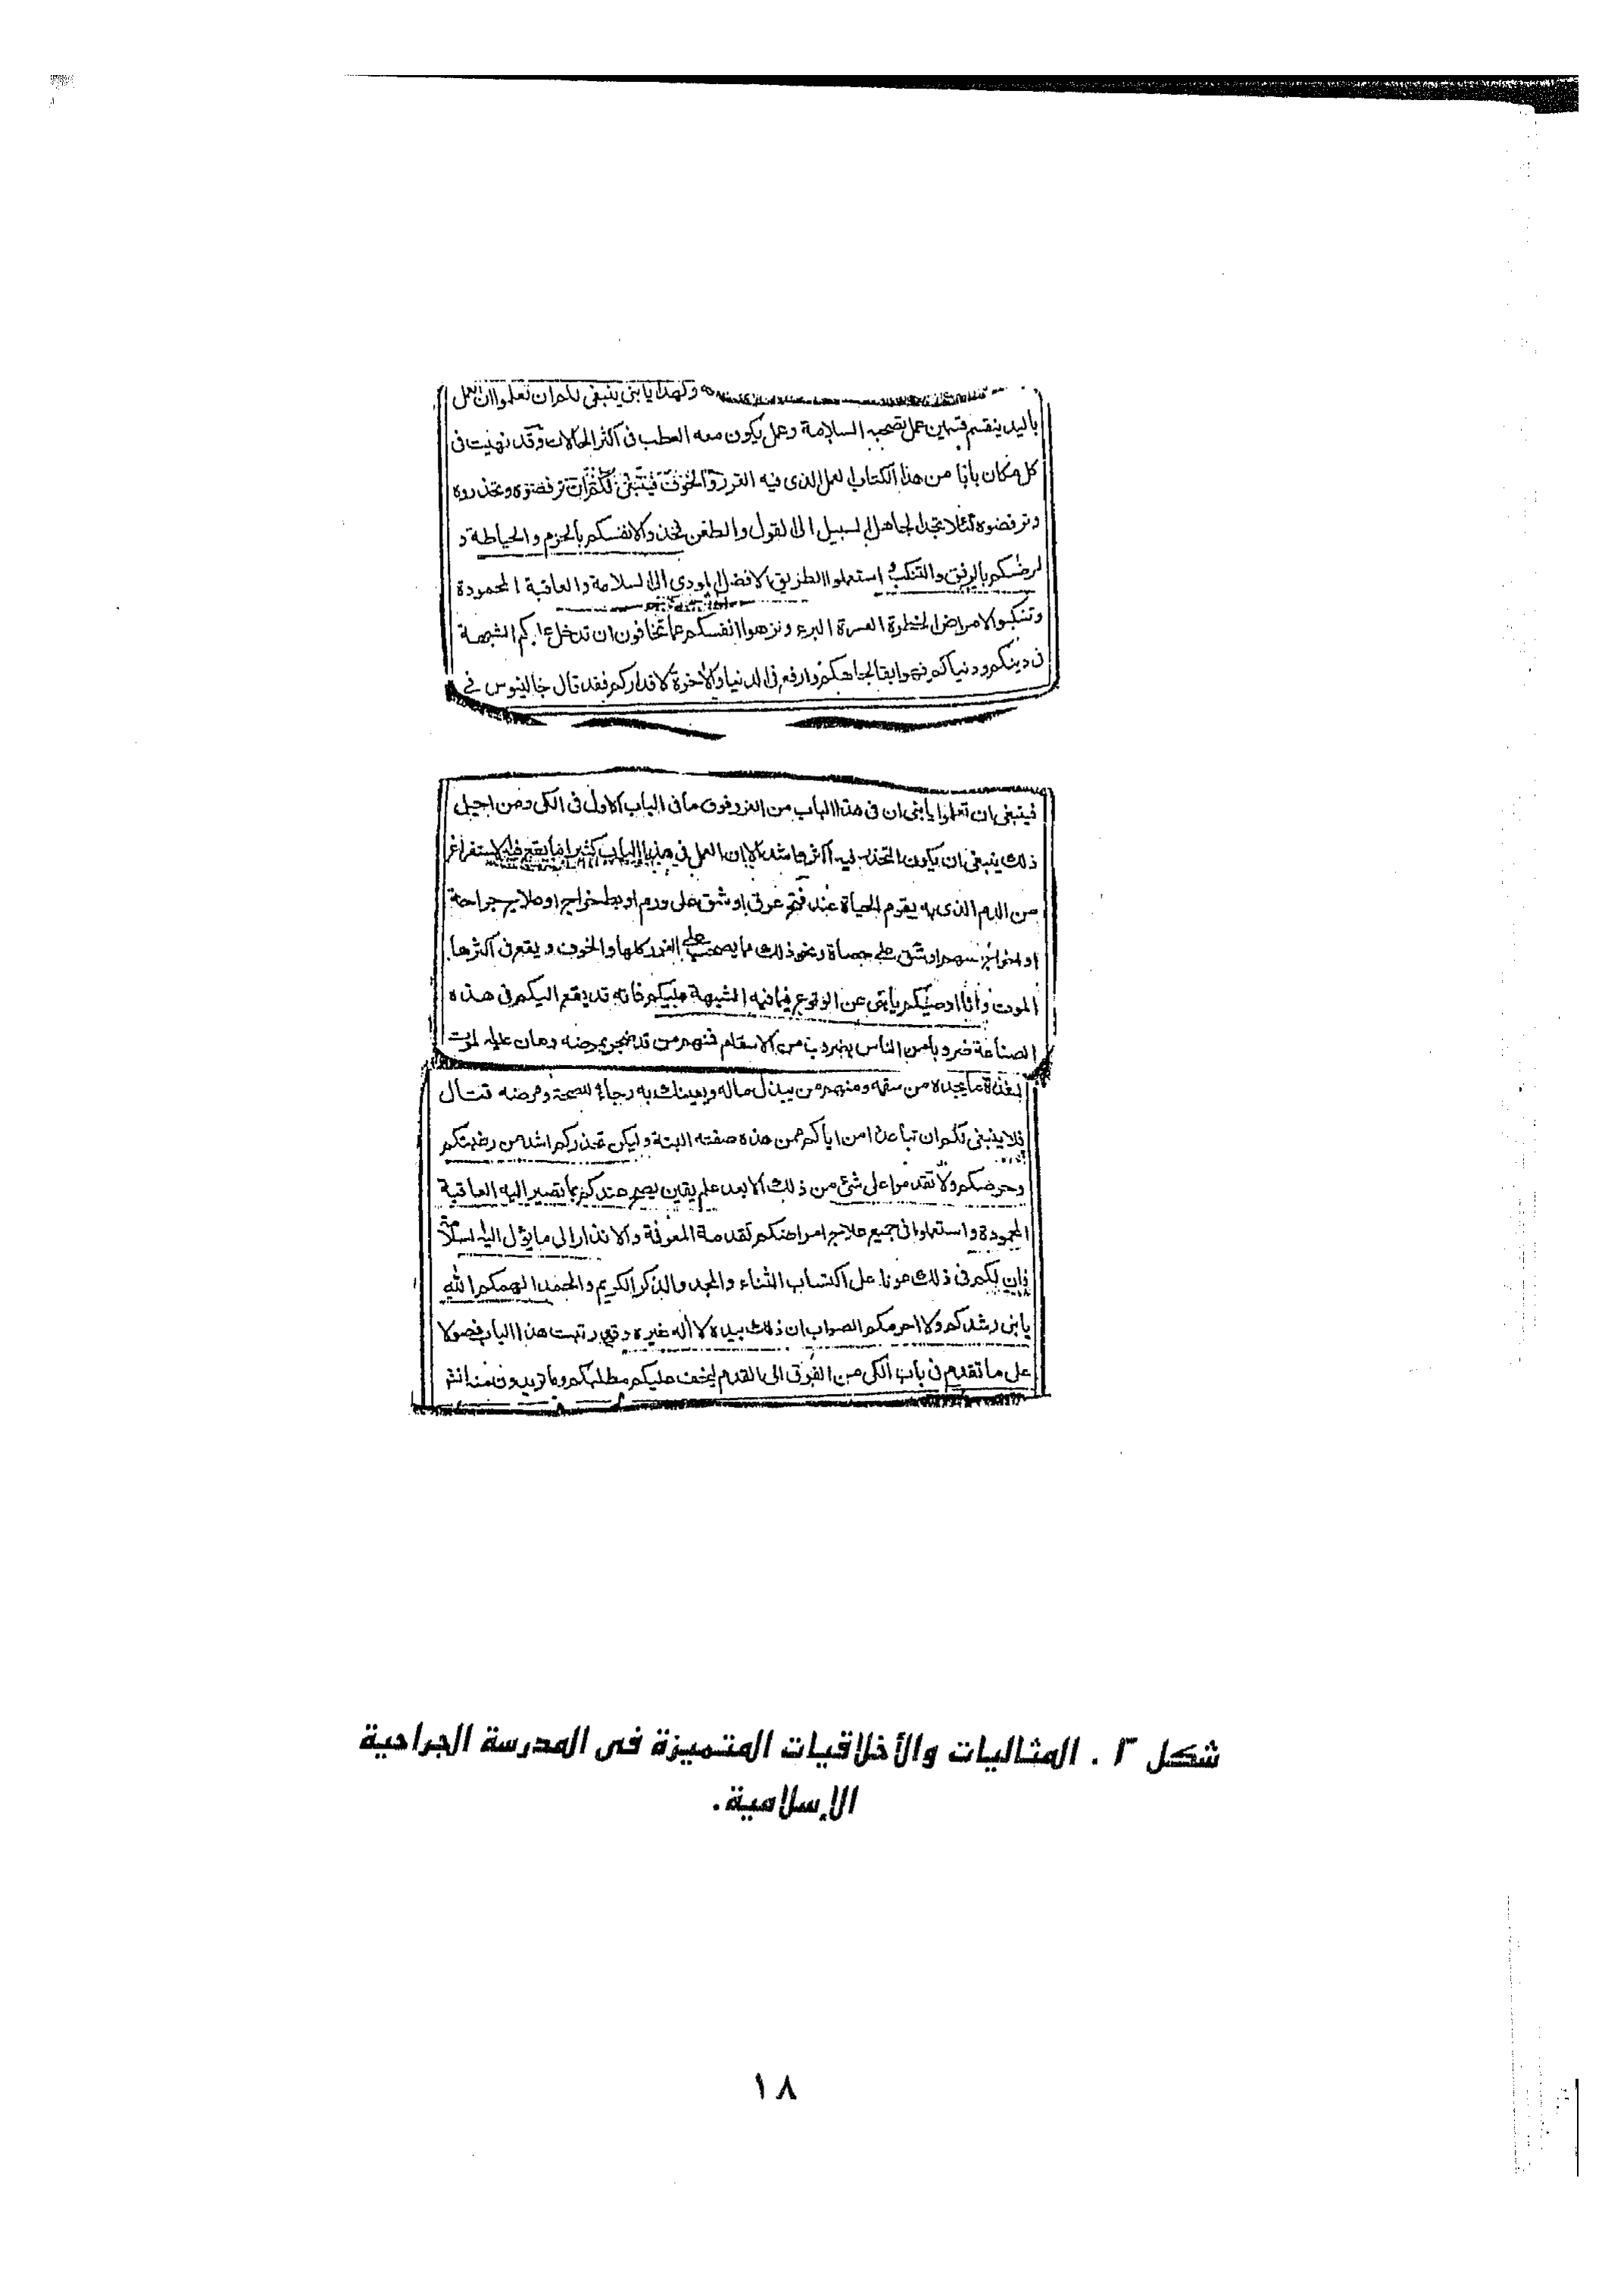 ولهذا يابنى ينبغى لكم ان تعلموا ان العمل
باليد ينقسم قسمين عمل تصحبه السلامة وعمل يكون معه العطب فى اكثر الحالات وقد نبهت فى
كل مكان يأتى من هذا الكتاب العمل الذى فيه الغرر والخوف فينبغى لكم ان ترفضوه وتحذروه
وترفضوه لئلا يجد الجاهل السبيل الى القول والطعن فخذوا لانفسكم بالحزم والحياطة و
لمرضاكم بالرفق والتنكب و استعملوا الطريق الافضل المودى الى السلامة والعاقبة المحمودة
وتنكبوا الامراض الخطرة العسرة البرء ونزهوا انفسكم عما تخافون ان تدخل عليكم الشبهة
فى دينكم ودنياكم فهو ابقا لجاهكم وارفع فى الدنيا والاخرة لاقداركم فقد قال جالينوس فى
فينبغى ان تعلموا يابنى ان فى هذا الباب من الغرر فوق ما فى الباب الاول فى الكى ومن اجل
ذلك ينبغى ان يكون التحذير فيه اكثر واشد لان العمل فى هذا الباب كثيرا ما يقع فيه الاستفراغ
من الدم الذى به يقوم الحياة عند فتح عرق او شق على ورم او بط خراج او علاج جراحة
او اخراج سهم او شق على حصاة ونحو ذلك مما يصحب على الغرر كلها والخوف ويقع فى اكثرها
الموت وانا اوصيكم يابنى عن الوقوع فيما فيه الشبهة عليكم فانه قد يقع اليكم فى هذه
الصناعة ضروبا من الناس بضروب من الاسقام فمنهم من قد ضجر بمرضه وهان عليه الموت
لشدة ما يجده من سقمه ومنهم من يبذل ماله وبعينك به رجاء الصحة ومرضه قتال
فلا ينبغى لكم ان تباعدا من اياكم ممن هذه صفته البتة وليكن تحذركم اشد من رغبتكم
وحرصكم ولا تقدموا على شئ من ذلك الا بعد علم يقين يصح عندكم بما تصير اليه العاقبة
المحمودة واستعملوا فى جميع علاج امراضكم تقدمة المعرفة والانذار الى ما يؤل اليه السلامة
فان لكم فى ذلك عونا على اكتساب الثناء والمجد والذكر الكريم والحمد الهمكم الله
يابنى رشدكم ولا احرمكم الصواب ان ذلك بيده لا اله غيره وقد رتبت هذا الباب فصولا
على ما تقدم فى باب الكى من الفرق الى القدم ليخف عليكم مطلبكم وما تريدون منه انشا
شكل ٣ . المثاليات والأخلاقيات المتميزة فى المدرسة الجراحية
الإسلامية.
١٨